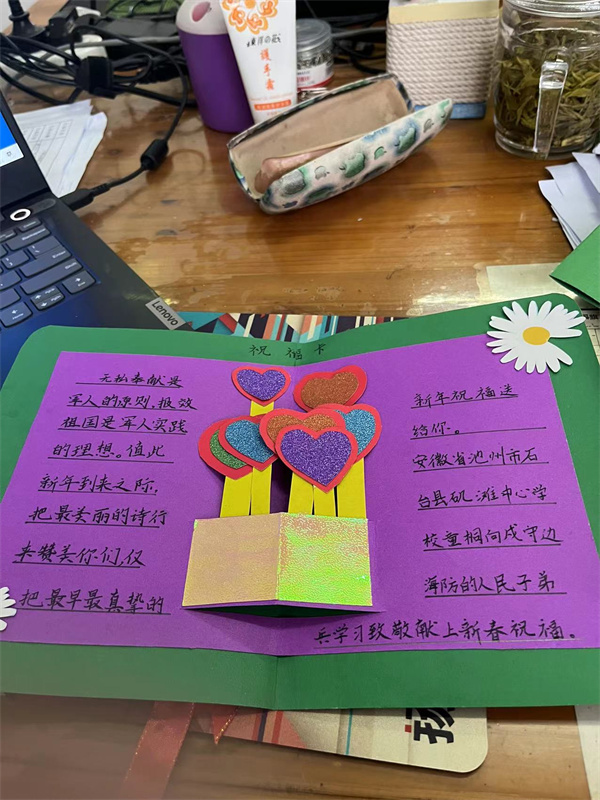 护手霜
Lenovo
祝福卡
无私奉献是
军人的原则,报效
祖国是军人实践
的理想。值此
新年到来之际,
把最美丽的诗行
来赞美你们,仅
把最早最真挚的
新年祝福送
给你。
安徽省池州市石
台县矶滩中心学
校童桐向戍守边
海防的人民子弟
兵学习致敬献上新春祝福。